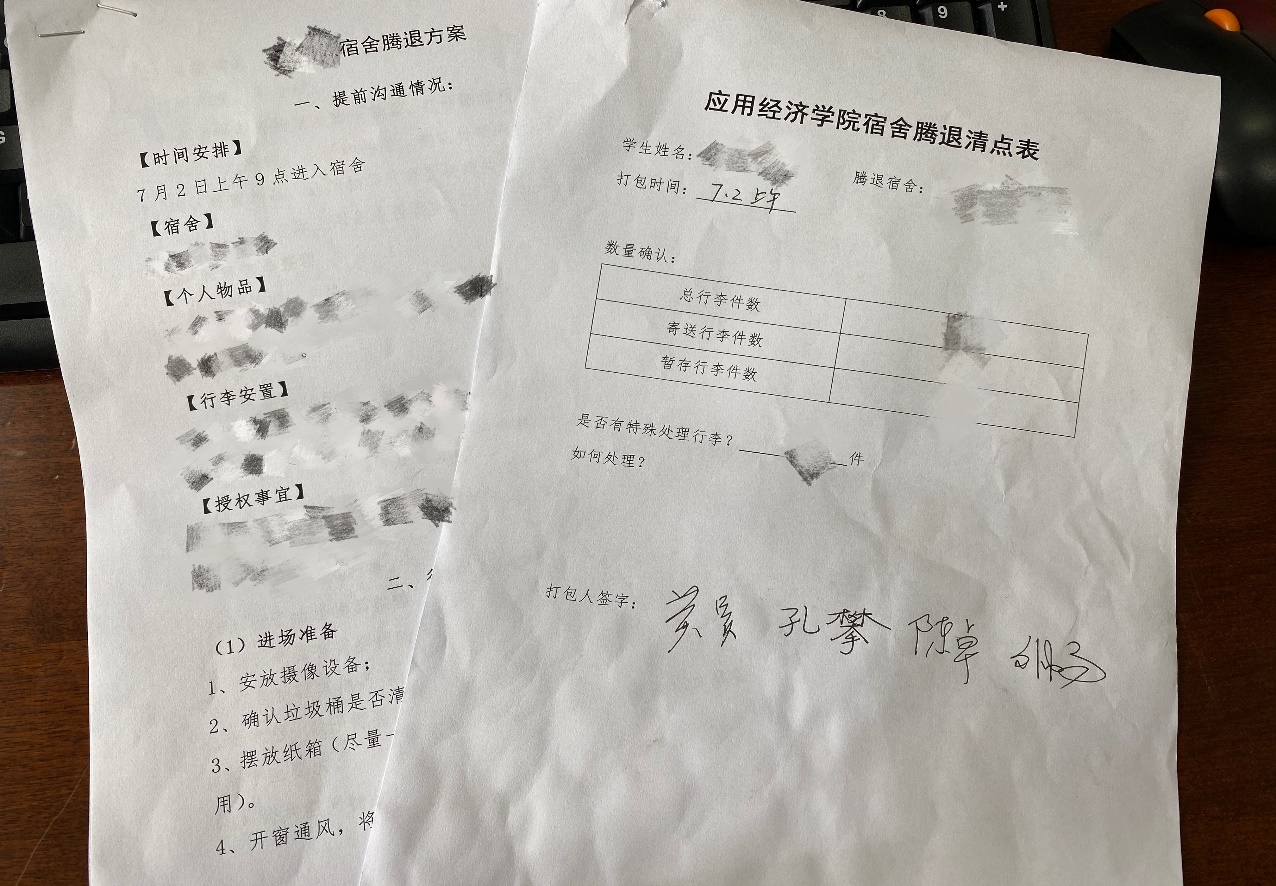 宿舍腾退方案
一、提前沟通情况：
【时间安排】
7月2日上午9点进入宿舍
【宿舍】
【个人物品】
。
【行李安置】
【授权事宜】
二、
（1）进场准备
1、安放摄像设备；
2、确认垃圾桶是否清
3、摆放纸箱（尽量一
用）。
4、开窗通风，将
应用经济学院宿舍腾退清点表
学生姓名：
腾退宿舍：
打包时间：7.2上午
数量确认：
总行李件数
寄送行李件数
暂存行李件数
是否有特殊处理行李？件
如何处理？
打包人签字： 孔攀 陈卓
9 +